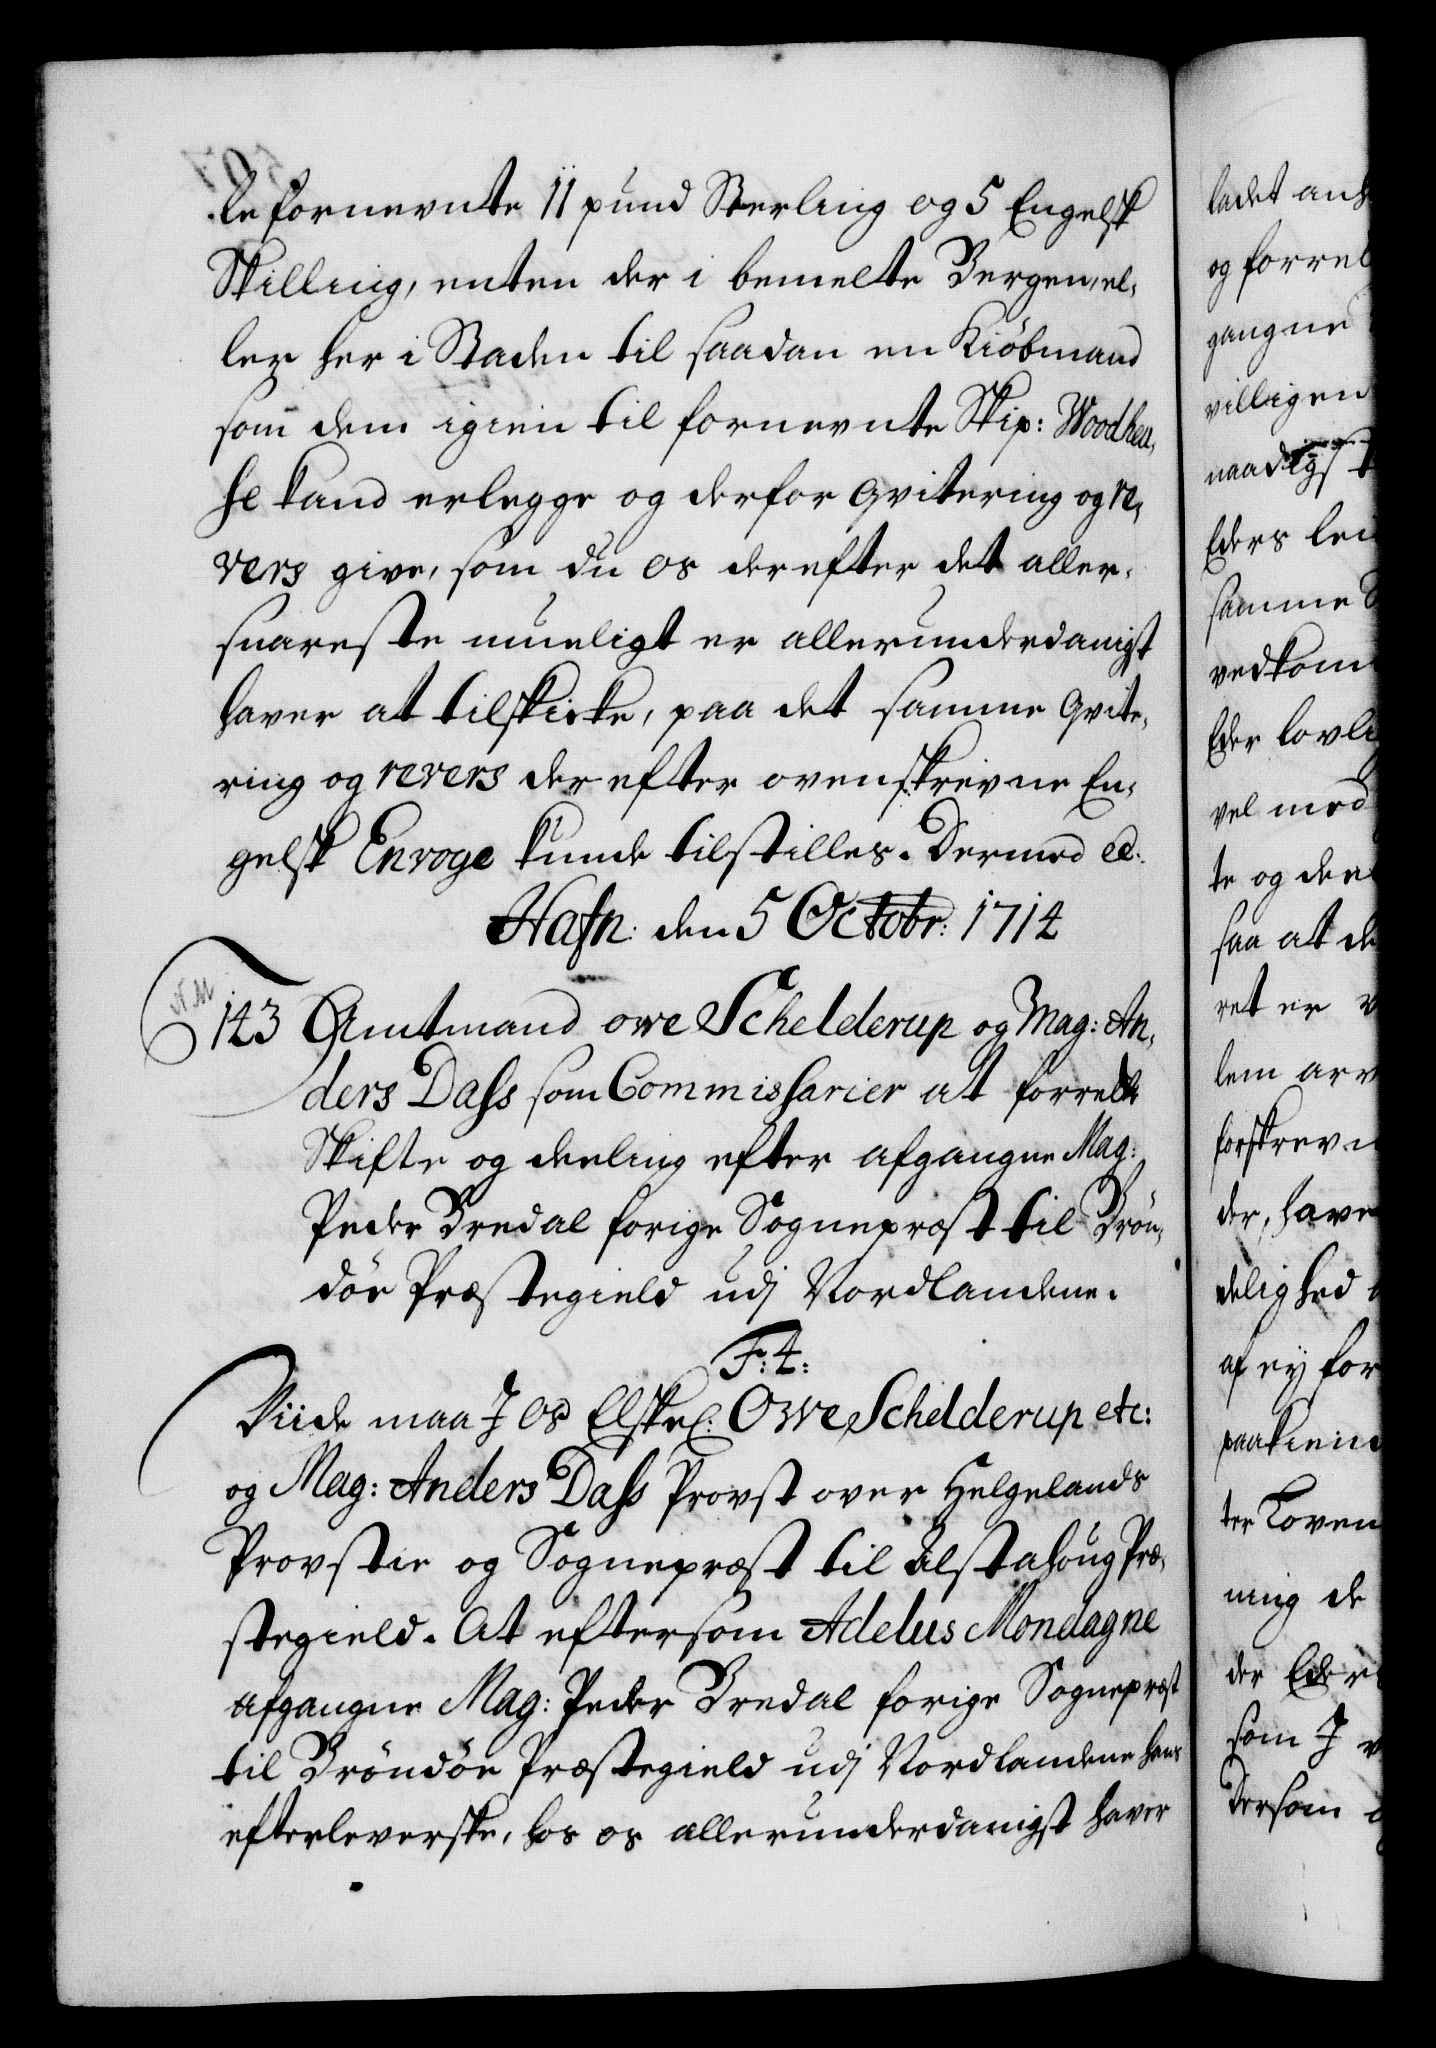 le fornevnte 11 pund Sterling og 5 Engelsk
Skilling, enten der i bemelte Bergen, el,
ler her i Staden til saadan en Kiöbmand
som dem igien til fornevnte Skip: Woodheu,
se kand erlegge og derfor qvitering og re,
vers give, som du os derefter det aller,
snareste mueligt er allerunderdanigst
haver at tilskicke, paa det samme qvite,
ring og revers derefter ovenskrevne En,
gelsk Envoge kunde tilstilles. Dermed etc:
Hafn: den 5 Octobr: 1714
N.M
143 Amtmand owe Schelderup og Mag: An,
ders Dass som Commissarier at forrette
Skifte og deeling efter afgangne Mag:
Peder Bredal forige Sognepræst til Brön,
döe Præstegield udj Nordlandene.
F: 4:
Viide maa J os Elskel: Owe Schelderup etc:
og Mag: Anders Dass Provst over Helgelands
Provstie og Sognepræst til Alstahoug Præ,
stegield. At eftersom Adelus Mondagne
afgangne Mag: Peder Bredal forige Sognepræst
til Bröndöe Præstegield udj Nordlandene hans
efterleverske, hos os allerunderdanigst haver
ladet an
og forre
gangne
villigen
naadigst
Eders
samme
vedkom
Eder lovli
vel med
te og
saa at de
ret er
lem arv
forskrevn
der, have
delighed
af ey for
paakien
ter Loven
ning de
der Eder
som J
Dersom